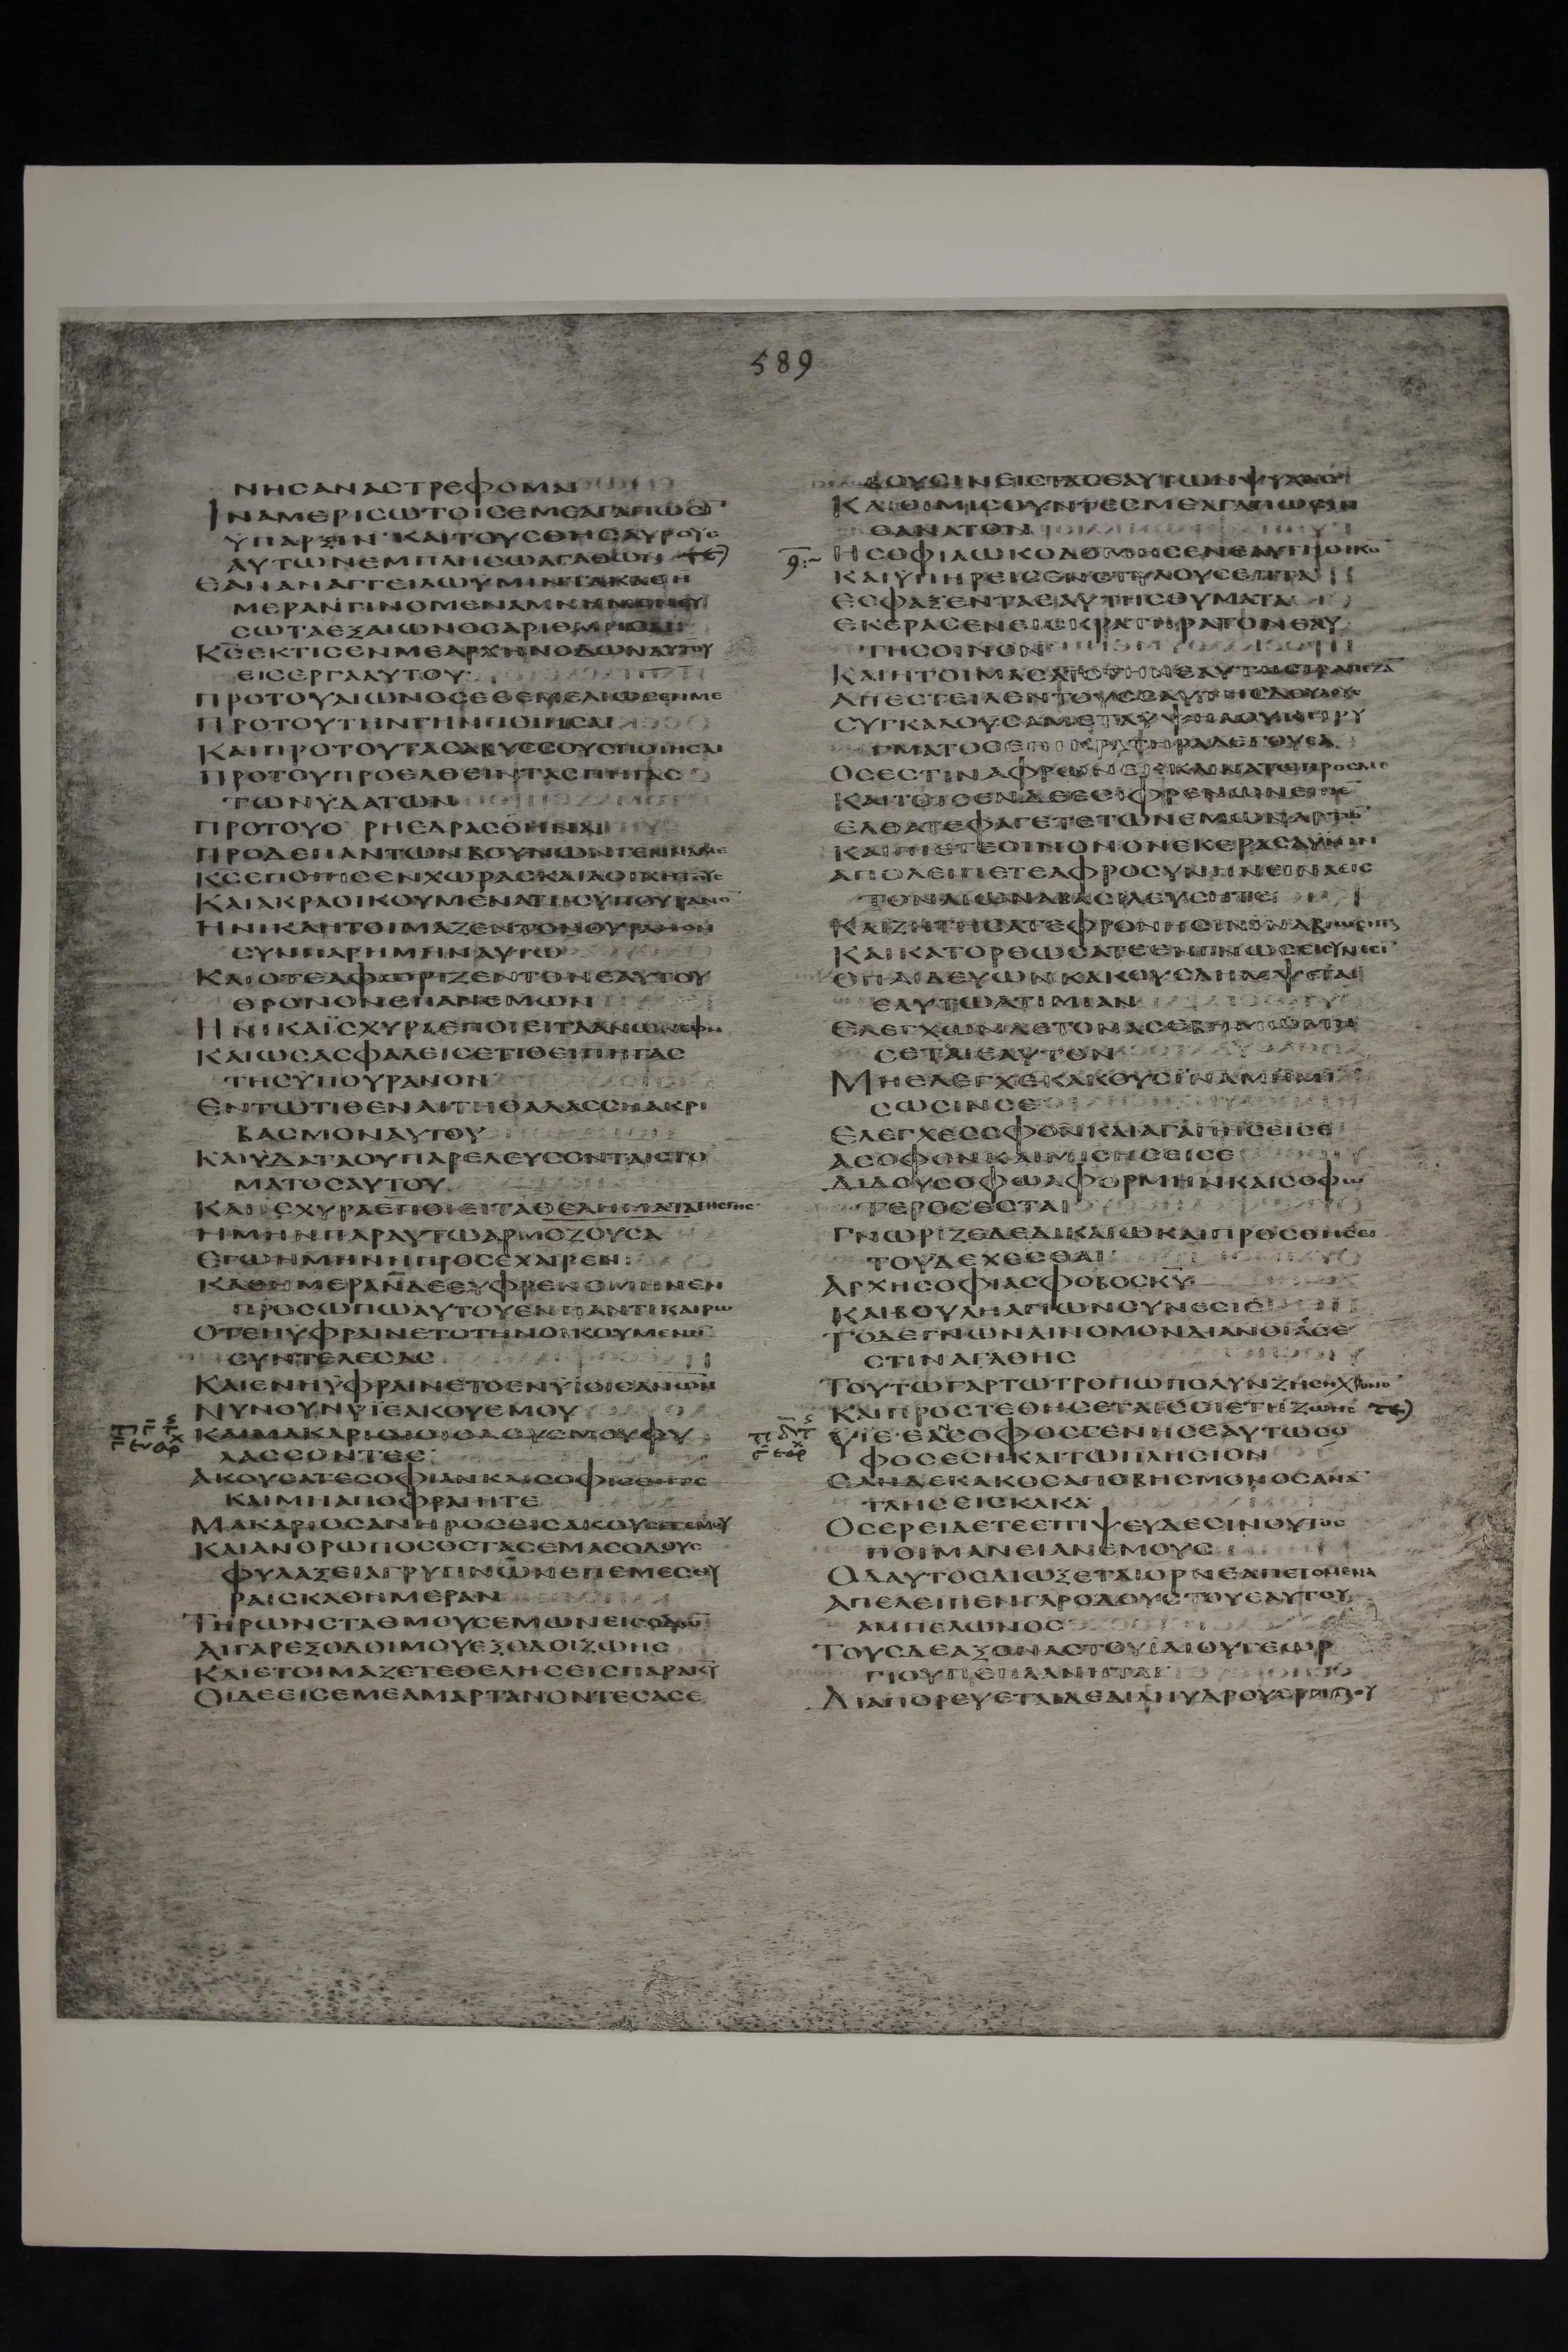 589
ΝΗCΑΝΑCΤΡΕΦΟΜΑΙ
ΙΝΑΜΕΡΙCΩΤΟΙCΕΜΕΑΓΑΠΩCΙ
ΥΠΑΡΞΙΝ ΚΑΙΤΟΥCΘΗCΑΥΡΟΥC
ΑΥΤΩΝΕΜΠΛΗCΩΑΓΑΘΩΝ
ΕΑΝΑΝΑΓΓΕΙΛΩΥΜΙΝΤΑΚΑΘΗ
ΜΕΡΑΝΓΙΝΟΜΕΝΑΜΝΗΜΟΝΕΥ
CΩΤΑΕΞΑΙΩΝΟCΑΡΙΘΜΗCΑΙ
ΚCΕΚΤΙCΕΝΜΕΑΡΧΗΝΟΔΩΝΑΥΤΟΥ
ΕΙCΕΡΓΑΑΥΤΟΥ
ΠΡΟΤΟΥΑΙΩΝΟCΕΘΕΜΕΛΙΩCΕΜΕ
ΠΡΟΤΟΥΤΗΝΓΗΝΠΟΙΗCΑΙ
ΚΑΙΠΡΟΤΟΥΤΑCΑΒΥCCΟΥCΠΟΙΗCΑΙ
ΠΡΟΤΟΥΠΡΟΕΛΘΕΙΝΤΑCΠΗΓΑC
ΤΩΝΥΔΑΤΩΝ
ΠΡΟΤΟΥΟ ΡΗΕΔΡΑCΘΗΝΑΙ
ΠΡΟΔΕΠΑΝΤΩΝΒΟΥΝΩΝΓΕΝΝΑΜΕ
ΚCΕΠΟΙΗCΕΝΧΩΡΑCΚΑΙΑΟΙΚΗΤΟΥC
ΚΑΙΑΚΡΑΟΙΚΟΥΜΕΝΑΤΗCΥΠΟΥΡΑΝΟ
ΗΝΙΚΑΗΤΟΙΜΑΖΕΝΤΟΝΟΥΡΑΝΟΝ
CΥΝΠΑΡΗΜΗΝΑΥΤΩ
ΚΑΙΟΤΕΑΦΩΡΙΖΕΝΤΟΝΕΑΥΤΟΥ
ΘΡΟΝΟΝΕΠΑΝΕΜΩΝ
ΗΝΙΚΑΪCΧΥΡΑΕΠΟΙΕΙΤΑΑΝΩΝΕΦΗ
ΚΑΙΩCΑCΦΑΛΕΙCΕΤΙΘΕΙΠΗΓΑC
ΤΗCΥΠΟΥΡΑΝΟΝ
ΕΝΤΩΤΙΘΕΝΑΙΤΗΘΑΛΑCCΗΑΚΡΙ
ΒΑCΜΟΝΑΥΤΟΥ
ΚΑΙΥΔΑΤΑΟΥΠΑΡΕΛΕΥCΟΝΤΑΙCΤΟ
ΜΑΤΟCΑΥΤΟΥ
ΚΑΙΙCΧΥΡΑΕΠΟΙΕΙΤΑΘΕΛΗΜΑΤΑΤΗCΓΗC
ΗΜΗΝΠΑΡΑΥΤΩΑΡΜΟΖΟΥCΑ
ΕΓΩΗΜΗΝΗΠΡΟCΕΧΑΙΡΕΝ
ΚΑΘΗΜΕΡΑΝΔΕΕΥΦΡΕΝΟΜΗΝΕΝ
ΠΡΟCΩΠΩΑΥΤΟΥΕΝΠΑΝΤΙΚΑΙΡΩ
ΟΤΕΗΥΦΡΑΙΝΕΤΟΤΗΝΟΙΚΟΥΜΕΝΗ
CΥΝΤΕΛΕCΑC
ΚΑΙΕΝΗΥΦΡΑΙΝΕΤΟΕΝΥΙΟΙCΑΝΩΝ
ΝΥΝΟΥΝΥΪΕΑΚΟΥΕΜΟΥ
ΚΑΙΜΑΚΑΡΙΟΙΟΙΟΔΟΥCΜΟΥΦΥ
ΛΑCCΟΝΤΕC
ΑΚΟΥCΑΤΕCΟΦΙΑΝΚΑΙCΟΦΙCΘΗΤΕ
ΚΑΙΜΗΑΠΟΦΡΑΓΗΤΕ
ΜΑΚΑΡΙΟCΑΝΗΡΟCΕΙCΑΚΟΥCΕΤΕΜΟΥ
ΚΑΙΑΝΘΡΩΠΟCΟCΤΑCΕΜΑCΟΔΟΥC
ΦΥΛΑΞΕΙΑΓΡΥΠΝΩΝΕΠΕΜΕCΘΥ
ΡΑΙCΚΑΘΗΜΕΡΑΝ
ΤΗΡΩΝCΤΑΘΜΟΥCΕΜΩΝΕΙCΟΔΩ
ΑΙΓΑΡΕΞΟΔΟΙΜΟΥΕΞΟΔΟΙΖΩΗC
ΚΑΙΕΤΟΙΜΑΖΕΤΕΘΕΛΗCΕΙCΠΑΡΑΚΥ
ΟΙΔΕΕΙCΕΜΕΑΜΑΡΤΑΝΟΝΤΕCΑCΕ
ΒΟΥCΙΝΕΙCΤΑCΕΑΥΤΩΝΨΥΧΑC
ΚΑΙΟΙΜΙCΟΥΝΤΕCΜΕΑΓΑΠΩCΙΝ
ΘΑΝΑΤΟΝ
ΗCΟΦΙΑΩΚΟΔΟΜΗCΕΝΕΑΥΤΗΟΙΚΟ
ΚΑΙΥΠΗΡΕΙCΕΝCΤΥΛΟΥCΕΠΤΑ
ΕCΦΑΞΕΝΤΑΕΑΥΤΗCΘΥΜΑΤΑ
ΕΚΕΡΑCΕΝΕΙCΚΡΑΤΗΡΑΤΟΝΕΑΥ
ΤΗCΟΙΝΟΝ
ΚΑΙΗΤΟΙΜΑCΑΤΟΤΗΝΕΑΥΤΗCΤΡΑΠΕΖΑ
ΑΠΕCΤΕΙΛΕΝΤΟΥCΕΑΥΤΗCΔΟΥΛΟΥC
CΥΓΚΑΛΟΥCΑΜΕΤΑΥΨΗΛΟΥΚΗΡΥ
ΓΜΑΤΟCΕΠΙΚΡΑΤΗΡΑΛΕΓΟΥCΑ
ΟCΕCΤΙΝΑΦΡΩΝΕΚΚΛΙΝΑΤΩΠΡΟCΜΕ
ΚΑΙΤΟΙCΕΝΔΕΕCΙΦΡΕΝΩΝΕΙΠΕ
ΕΛΘΑΤΕΦΑΓΕΤΕΤΩΝΕΜΩΝΑΡΤΩ
ΚΑΙΠΙΕΤΕΟΙΝΟΝΟΝΕΚΕΡΑCΑΥΜΙΝ
ΑΠΟΛΕΙΠΕΤΕΑΦΡΟCΥΝΗΝΕΙΝΑΕΙC
ΤΟΝΑΙΩΝΑΒΑCΙΛΕΥCΗΤΕ
ΚΑΙΖΗΤΗCΑΤΕΦΡΟΝΗCΙΝΙΝΑΒΙΩCΗΤΕ
ΚΑΙΚΑΤΟΡΘΩCΑΤΕΕΝΓΝΩCΕΙCΥΝΕCΙ
ΟΠΑΙΔΕΥΩΝΚΑΚΟΥCΛΗΜΨΕΤΑΙ
ΕΑΥΤΩΑΤΙΜΙΑΝ
ΕΛΕΓΧΩΝΔΕΤΟΝΑCΕΒΗΜΩΜΗ
CΕΤΑΙΕΑΥΤΟΝ
ΜΗΕΛΕΓΧΕΚΑΚΟΥCΪΝΑΜΗΜΙ
CΩCΙΝCΕ
ΕΛΕΓΧΕCΟΦΟΝΚΑΙΑΓΑΠΗCΕΙCΕ
ΑCΟΦΟΝΚΑΙΜΙCΗCΕΙCΕ
ΔΙΔΟΥCΟΦΩΑΦΟΡΜΗΝΚΑΙCΟΦΩ
ΤΕΡΟCΕCΤΑΙ
ΓΝΩΡΙΖΕΔΕΔΙΚΑΙΩΚΑΙΠΡΟCΘΗCΕΙ
ΤΟΥΔΕΧΕCΘΑΙ
ΑΡΧΗCΟΦΙΑCΦΟΒΟCΚΥ
ΚΑΙΒΟΥΛΗΑΓΙΩΝCΥΝΕCΙC
ΤΟΔΕΓΝΩΝΑΙΝΟΜΟΝΔΙΑΝΟΙΑCΕ
CΤΙΝΑΓΑΘΗC
ΤΟΥΤΩΓΑΡΤΩΤΡΟΠΩΠΟΛΥΝΖΗCΕΙCΧΡΟΝΟ
ΚΑΙΠΡΟCΤΕΘΗCΕΤΑΙCΟΙΕΤΗΖΩΗC
ΥΪΕΕΑΝCΟΦΟCΓΕΝΗCΕΑΥΤΩCΟ
ΦΟCΕCΗΚΑΙΤΩΠΛΗCΙΟΝ
ΕΑΝΔΕΚΑΚΟCΑΠΟΒΗCΜΟΝΟCΑΝΑ
ΤΛΗCΕΙCΚΑΚΑ
ΟCΕΡΕΙΔΕΤΕΕΠΙΨΕΥΔΕCΙΝΟΥΤΟC
ΠΟΙΜΑΝΕΙΑΝΕΜΟΥC
ΟΔΑΥΤΟCΔΙΩΞΕΤΑΙΟΡΝΕΑΠΕΤΟΜΕΝΑ
ΑΠΕΛΕΙΠΕΝΓΑΡΟΔΟΥCΤΟΥΕΑΥΤΟΥ
ΑΜΠΕΛΩΝΟC
ΤΟΥCΔΕΑΞΟΝΑCΤΟΥΙΔΙΟΥΓΕΩΡ
ΓΙΟΥΠΕΠΛΑΝΗΤΑΙ
ΔΙΑΠΟΡΕΥΕΤΑΙΔΕΔΙΑΝΥΔΡΟΥΕΡΗΜΟΥ